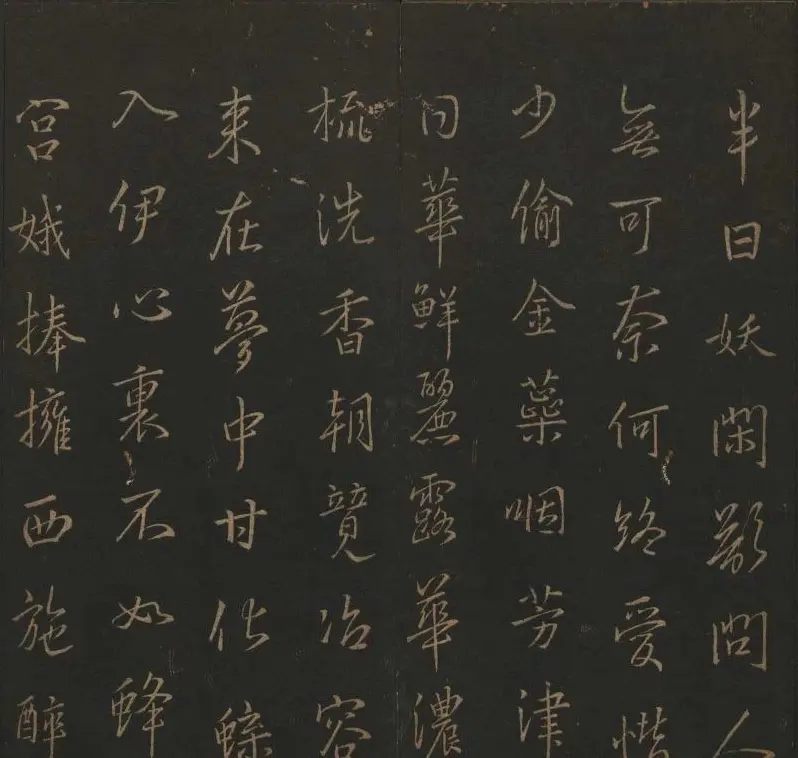 半日妖閑歡問人
無可奈何終受惜
少偷金蘂咽芳津
日華鮮麗露華濃
梳洗香朝競冶容
来在夢中甘作蝶
入伊心裏不如蜂
宮娥捧擁西施醉